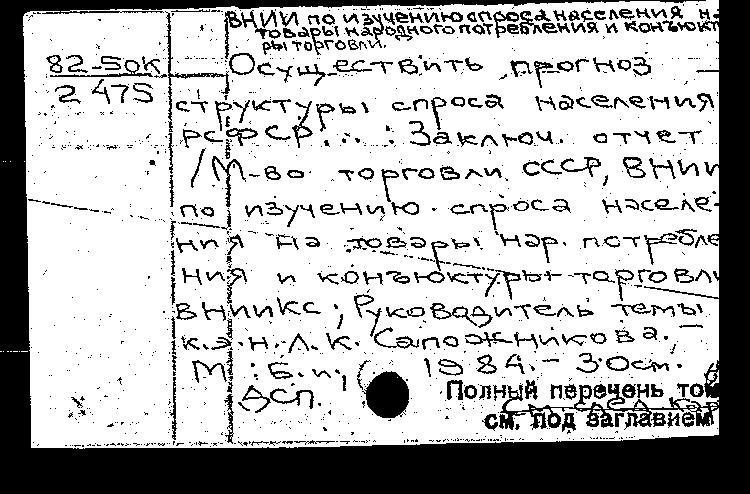 ВНИИ по изучению спроса населения на
товары народного потребления и конъюкт
ры торговли.
82-50К
2 475
Осуществить прогноз
структуры спроса населения
РСФСР...: Заключ. отчет
/М-во торговли СССР, ВНИИ
по изучению спроса населе-
ния на товары нар. потребле
ния и конъюктуры торговли
ВНИИКС; Руководитель темы
к.э.н. Л. К. Сапожникова. –
М.: Б.и., 1984. – 30см.
ДСП.
Полный перечень том
см. под заглавием